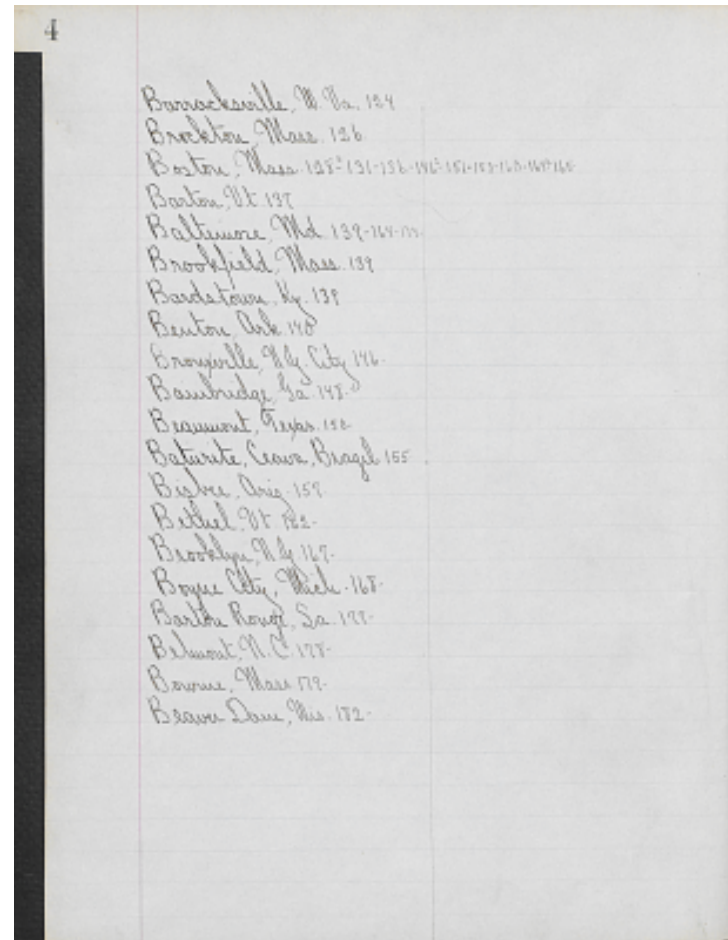 4
Barracksville, W. Va. 124
Brockton, Mass. 126
Boston, Mass. 128-131-136-146-151-153-160-164-165
Barton, Vt. 137
Baltimore, Md. 139-164
Brookfield, Mass. 139
Bardstown, Ky. 139
Benton, Ark. 140
Bronxville, N.Y. City 146-
Bainbridge, Ga. 148-
Beaumont, Texas. 150
Baturite, Ceara, Brazil 155
Bisbee, Ariz. 159-
Bethel, Vt. 162-
Brooklyn, N.Y. 167-
Boyne City, Mich. 168-
Barton Rouge, La. 177-
Belmont, N.C. 178-
Bourne, Mass. 179-
Beaver Dam, Wis. 182-